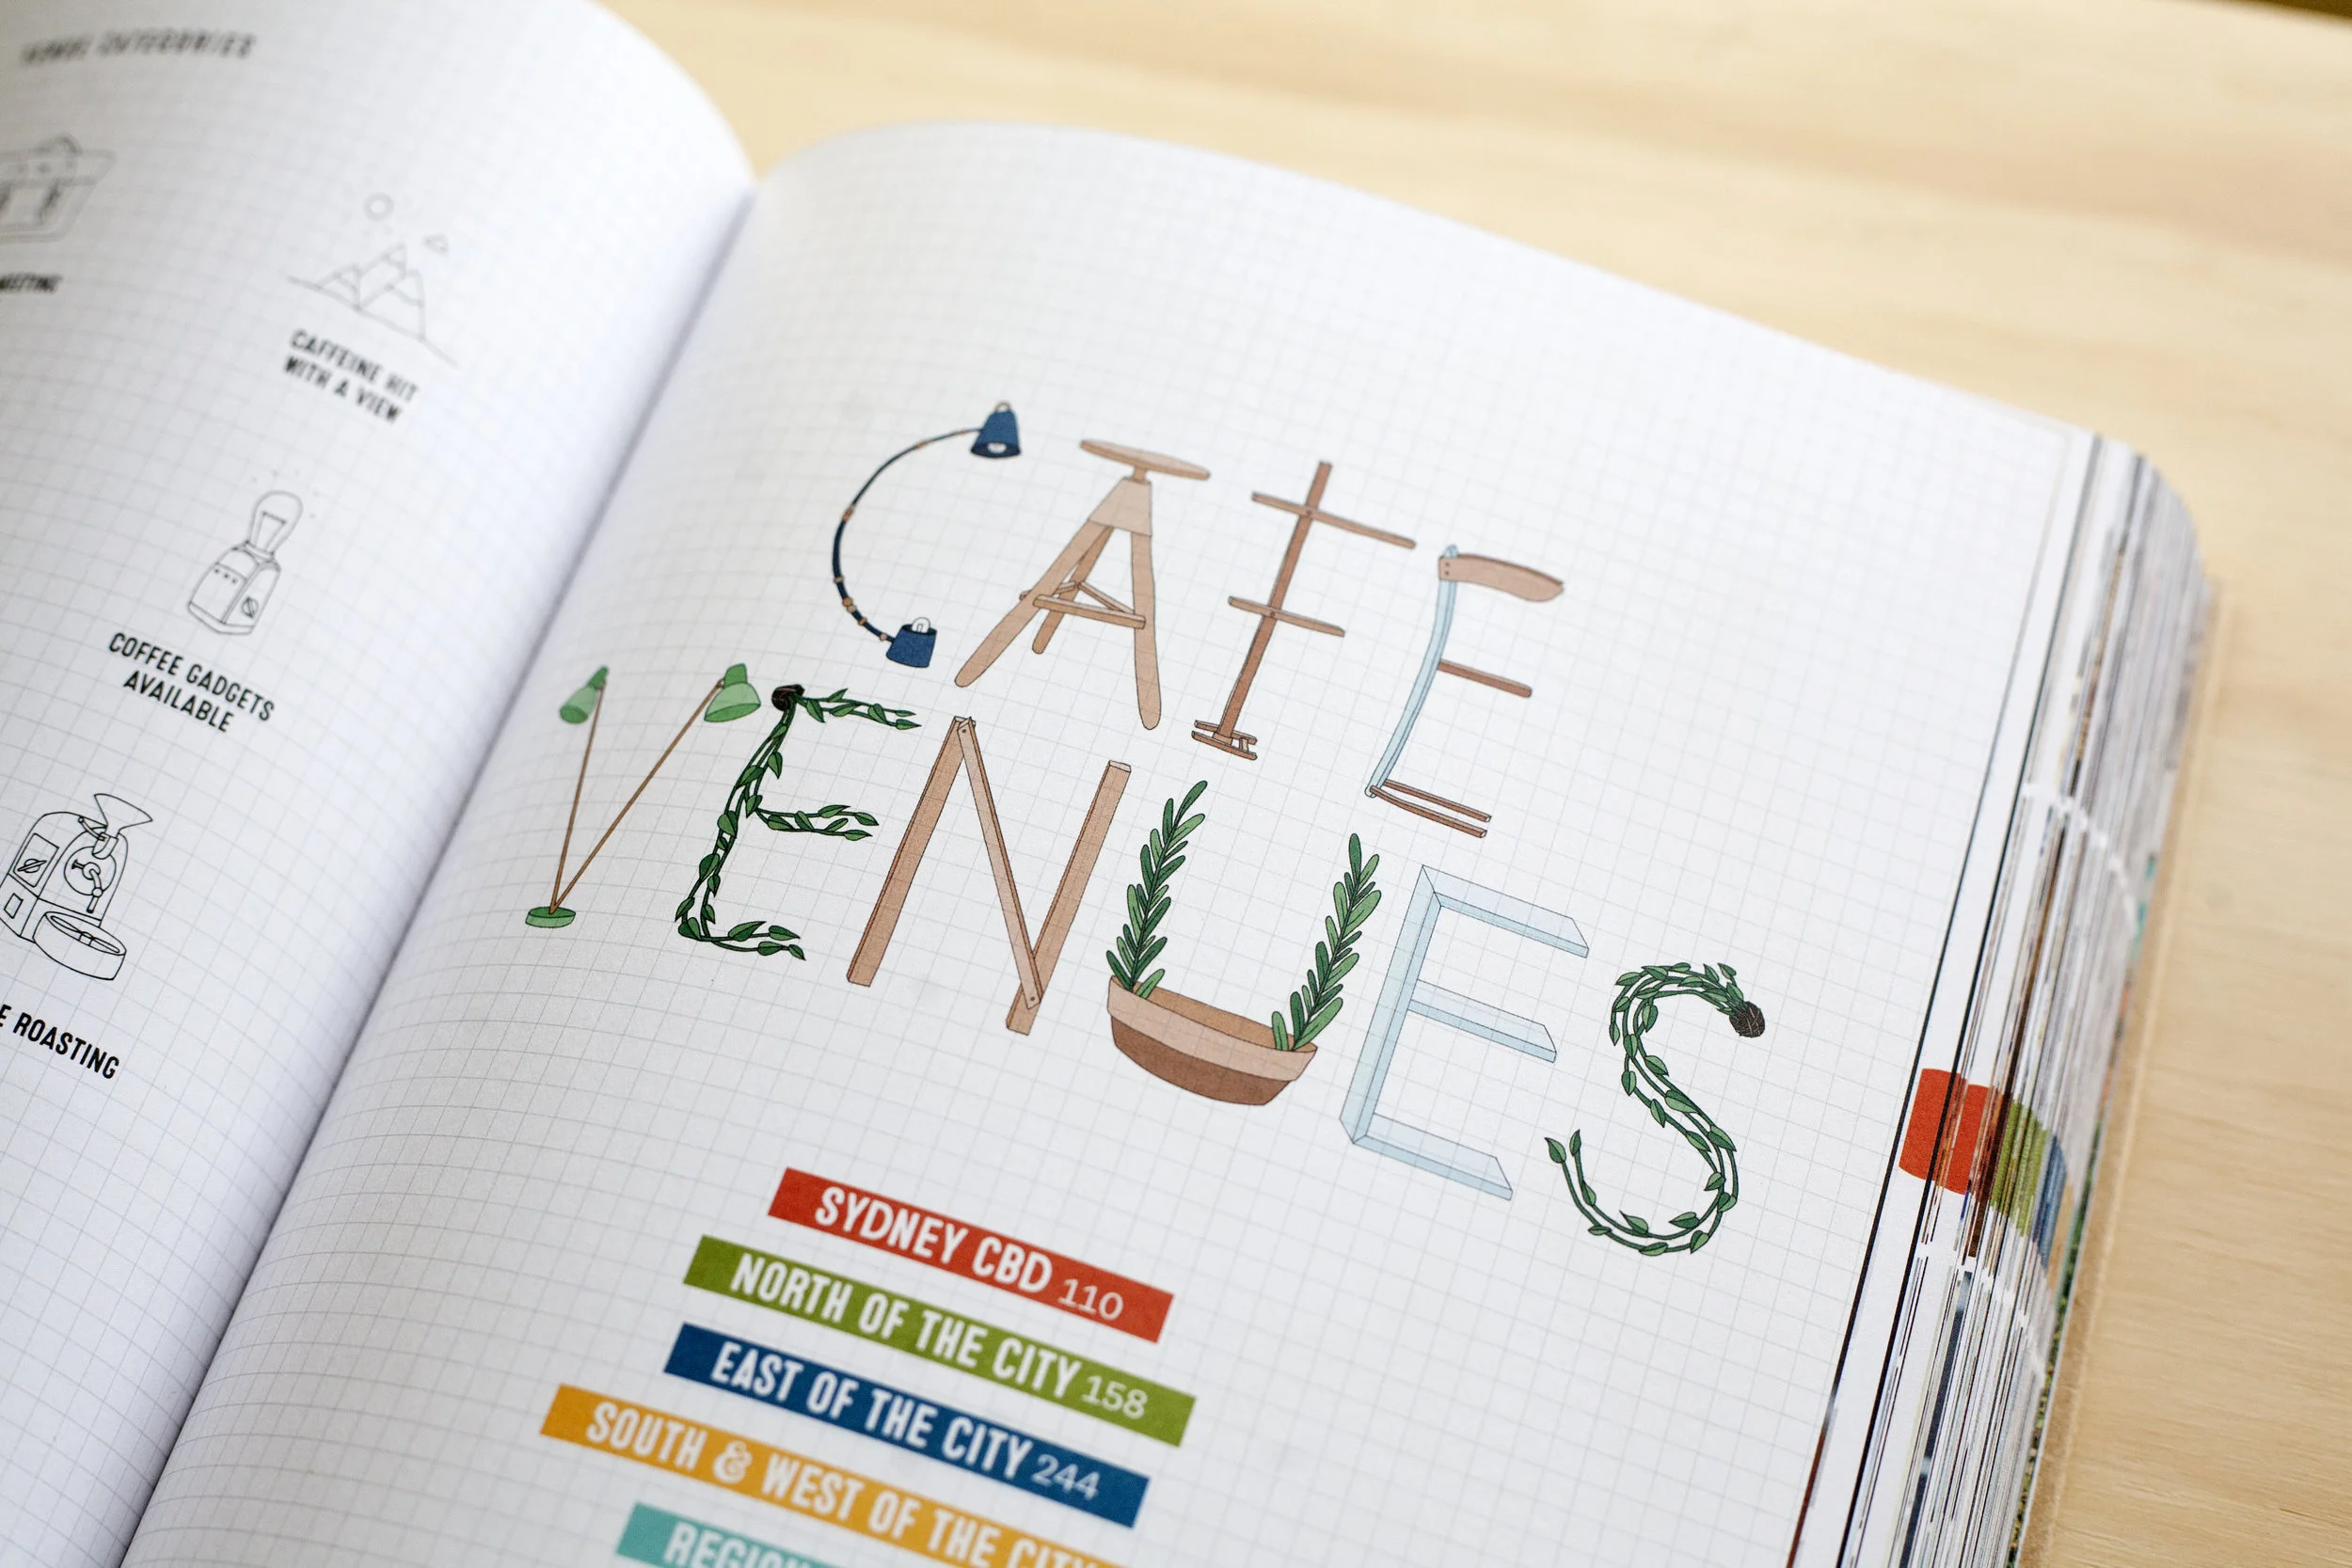 MEETING
CAFFEINE HIT
WITH A VIEW
COFFEE GADGETS
AVAILABLE
E ROASTING
CAFE
VENUES
SYDNEY CBD 110
NORTH OF THE CITY 158
EAST OF THE CITY 244
SOUTH & WEST OF THE CITY